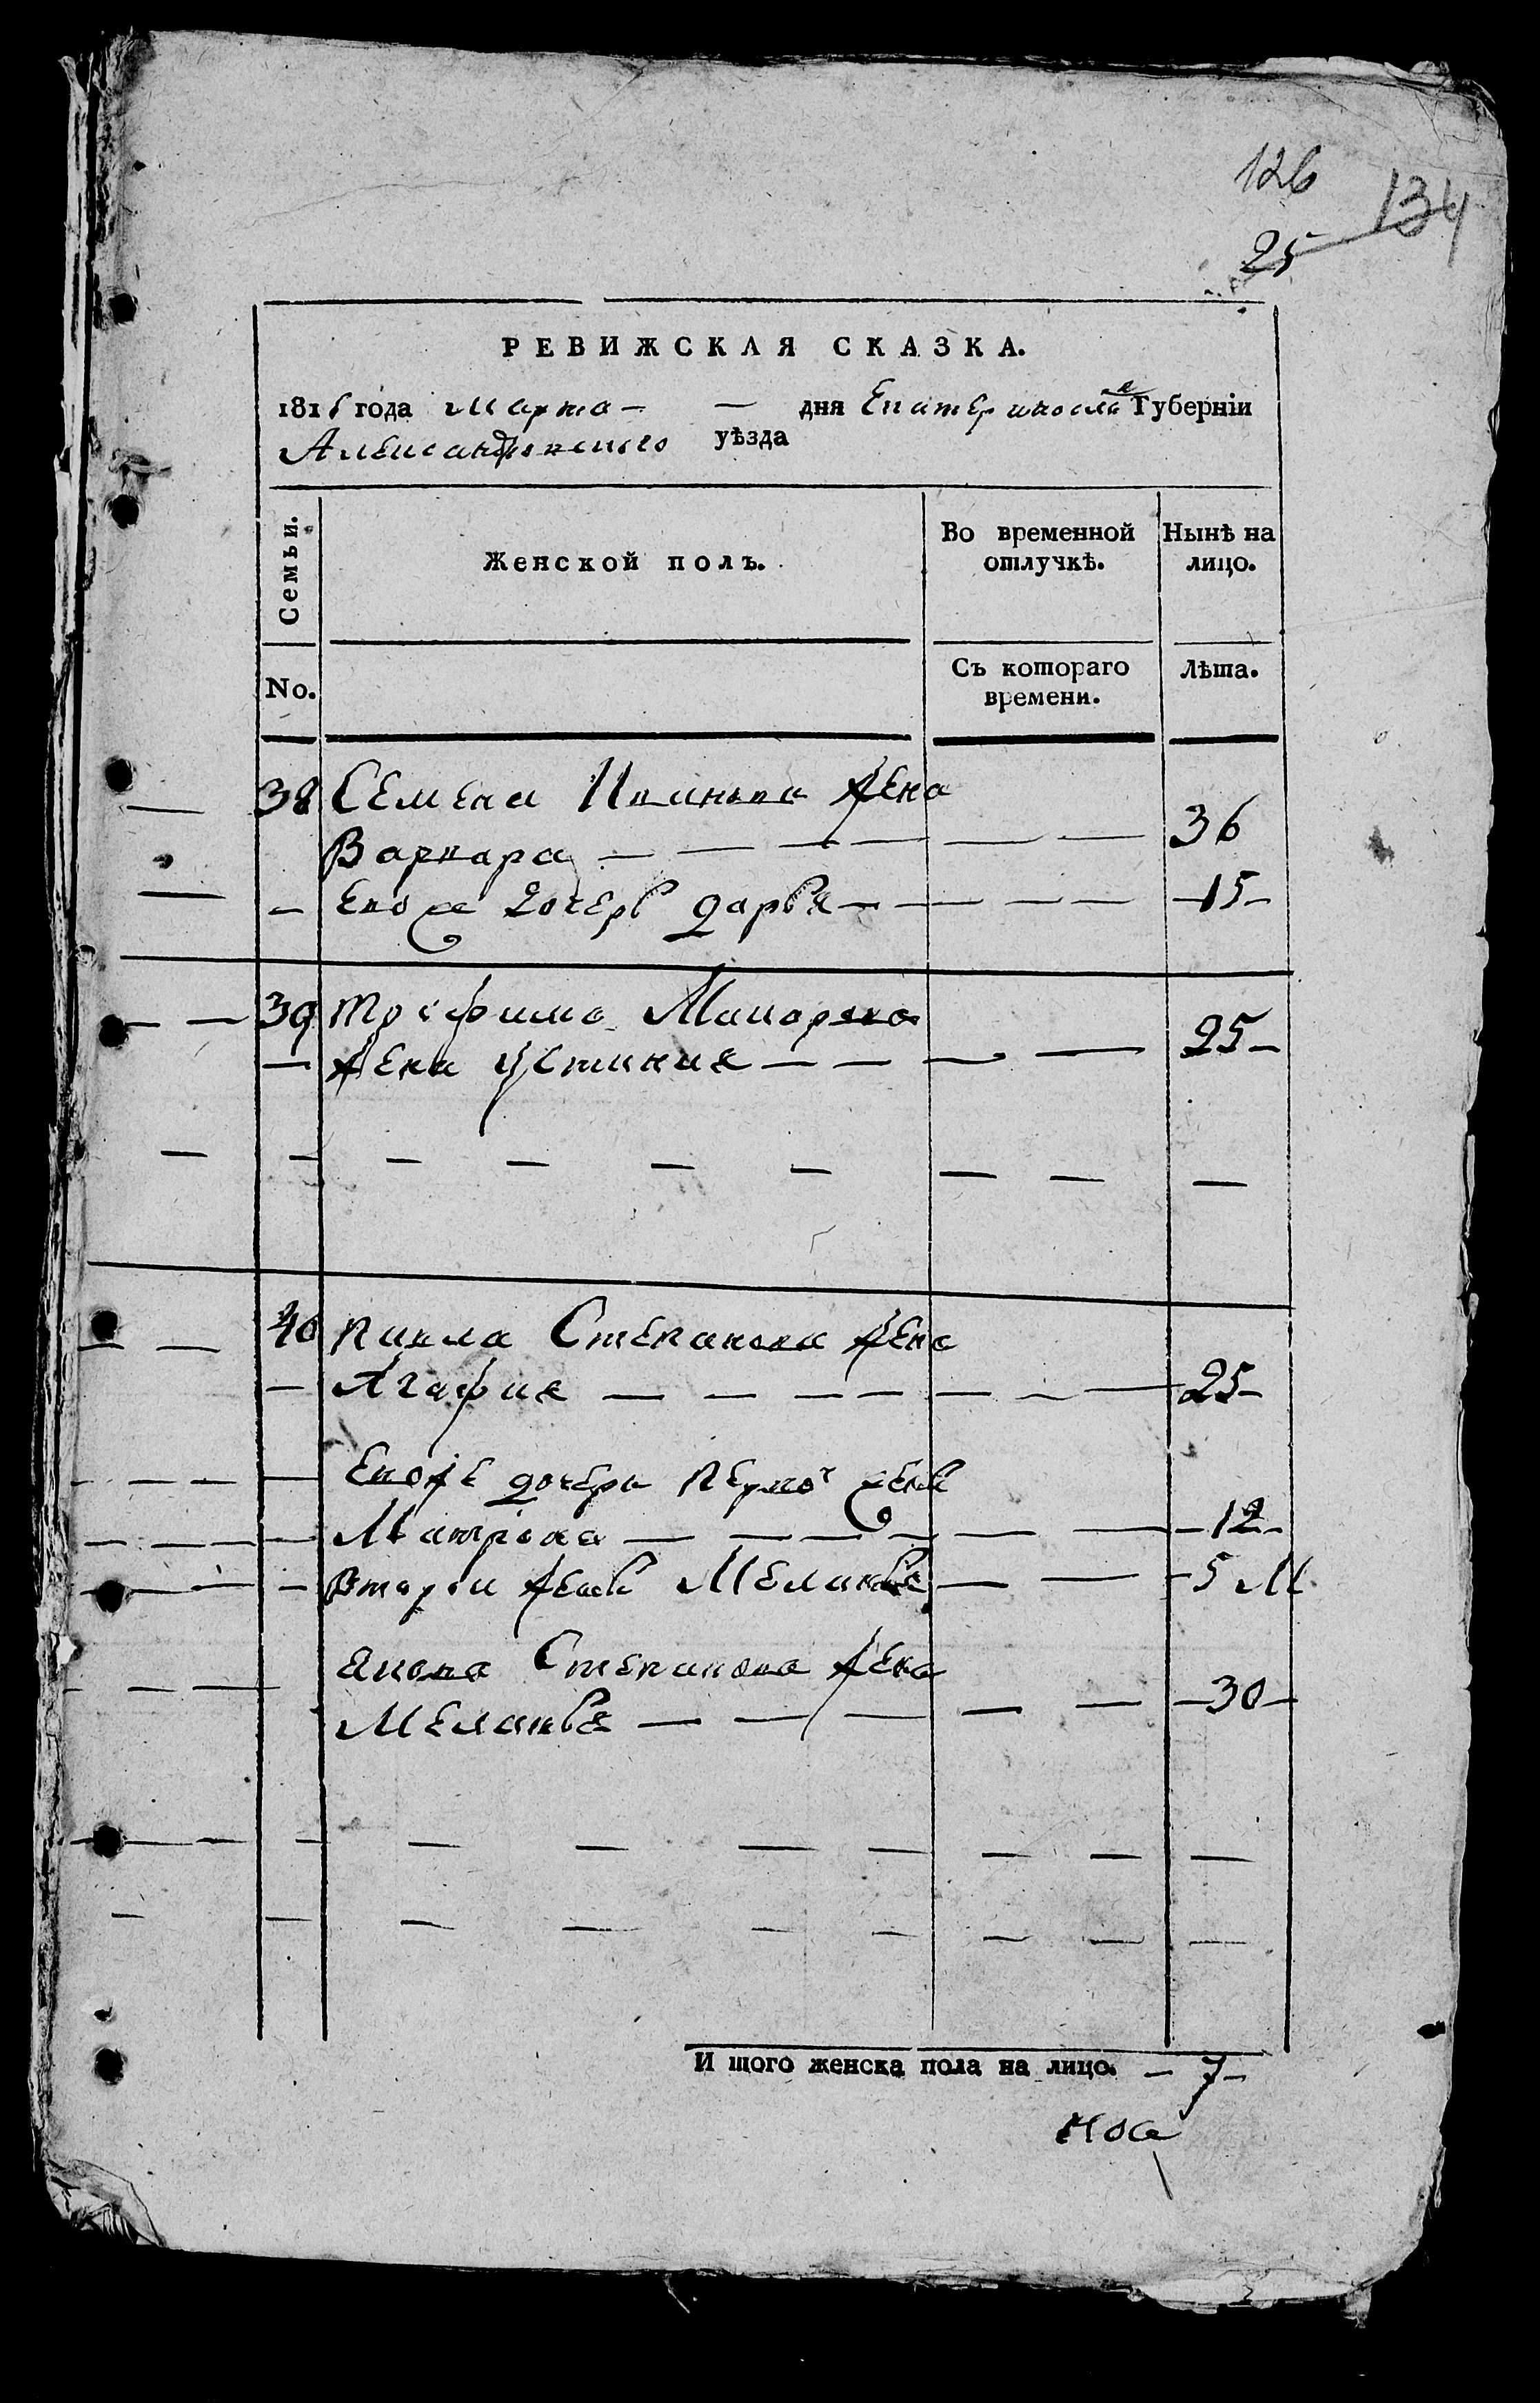 126
134
25
РЕВИЖСКАЯ СКАЗКА.
1816 года Марта — — дня Екатериносла Губерніи
Александровского уѣзда
Семьи. Женской полъ. Во временной отлучкѣ. Нынѣ на лицо.
No. Съ котораго времени. Лѣта.
38 Семена Иванова жена
Варвара — — — — — — 36
— Его же дочерь дарья — — — — —15—
39 Трофима Макарова
— жена Устиния — — — — 25—
— — — — — — — — —
40 Павла Степанова жена
— Агафия — — — — — — — 25—
— — — — Егоже дочери первой жены
— — — — Матрона — — — — — — —12—
— — — Второй жены Меланья — — —5 М
— — — Якова Степанова жена
Меланья — — — — — —30—
— — — — — — — — — —
— — — — — — — — —
И того женска пола на лицо. — 7—